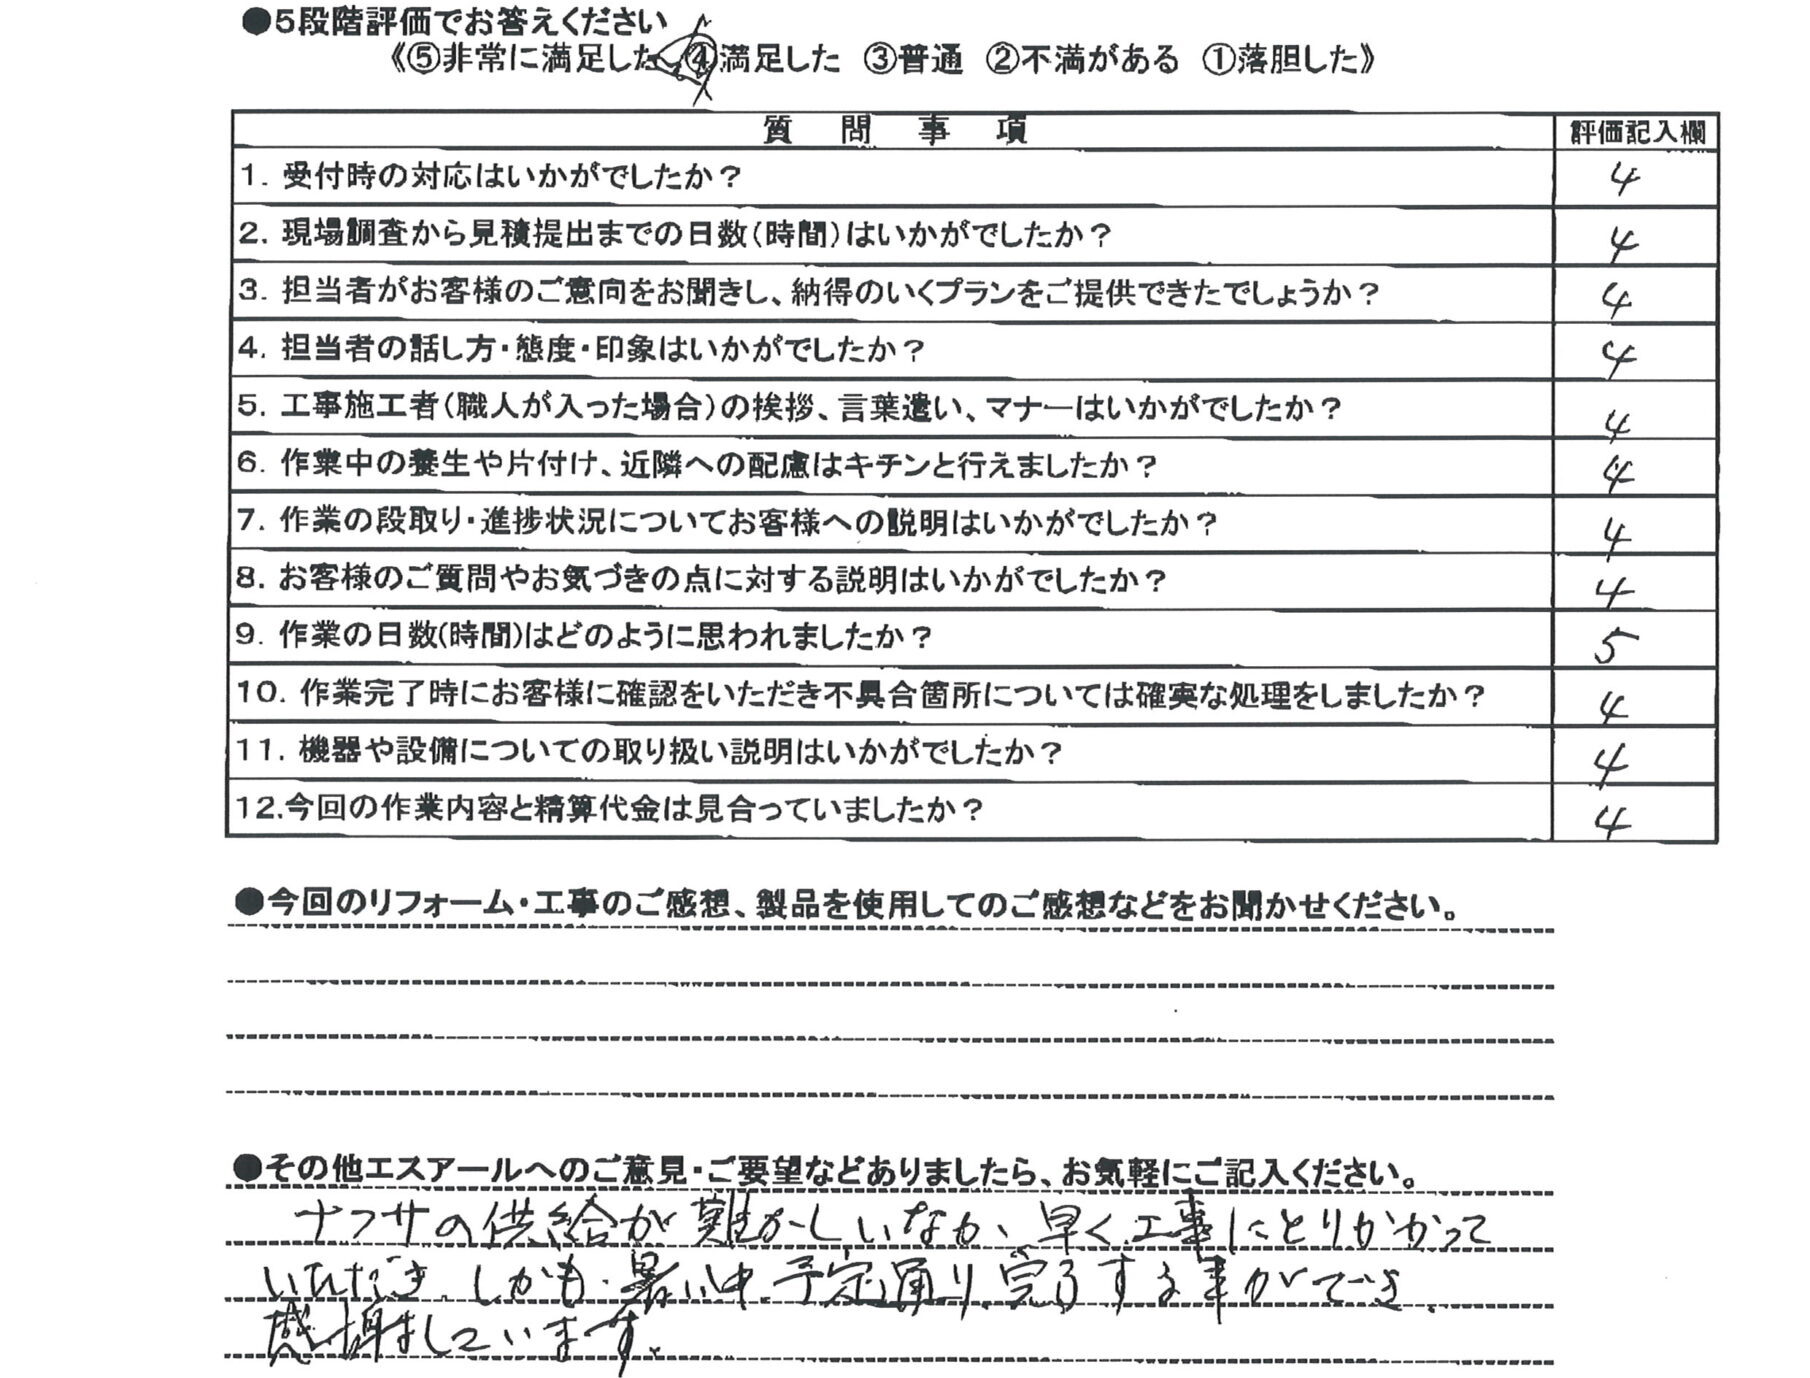 ●5段階評価でお答えください
《⑤非常に満足した ④満足した ③普通 ②不満がある ①落胆した》
質問事項 評価記入欄
1. 受付時の対応はいかがでしたか？ 4
2. 現場調査から見積提出までの日数(時間)はいかがでしたか？ 4
3. 担当者がお客様のご意向をお聞きし、納得のいくプランをご提供できたでしょうか？ 4
4. 担当者の話し方・態度・印象はいかがでしたか？ 4
5. 工事施工者(職人が入った場合)の挨拶、言葉遣い、マナーはいかがでしたか？ 4
6. 作業中の養生や片付け、近隣への配慮はキチンと行えましたか？ 4
7. 作業の段取り・進捗状況についてお客様への説明はいかがでしたか？ 4
8. お客様のご質問やお気づきの点に対する説明はいかがでしたか？ 4
9. 作業の日数(時間)はどのように思われましたか？ 5
10. 作業完了時にお客様に確認をいただき不具合箇所については確実な処理をしましたか？ 4
11. 機器や設備についての取り扱い説明はいかがでしたか？ 4
12.今回の作業内容と精算代金は見合っていましたか？ 4
●今回のリフォーム・工事のご感想、製品を使用してのご感想などをお聞かせください。
●その他エスアールへのご意見・ご要望などありましたら、お気軽にご記入ください。
ナフサの供給が難かしいなか、早く工事にとりかかって
いただき、しかも、暑い中、予定通り、完了する事ができ、
感謝しています。